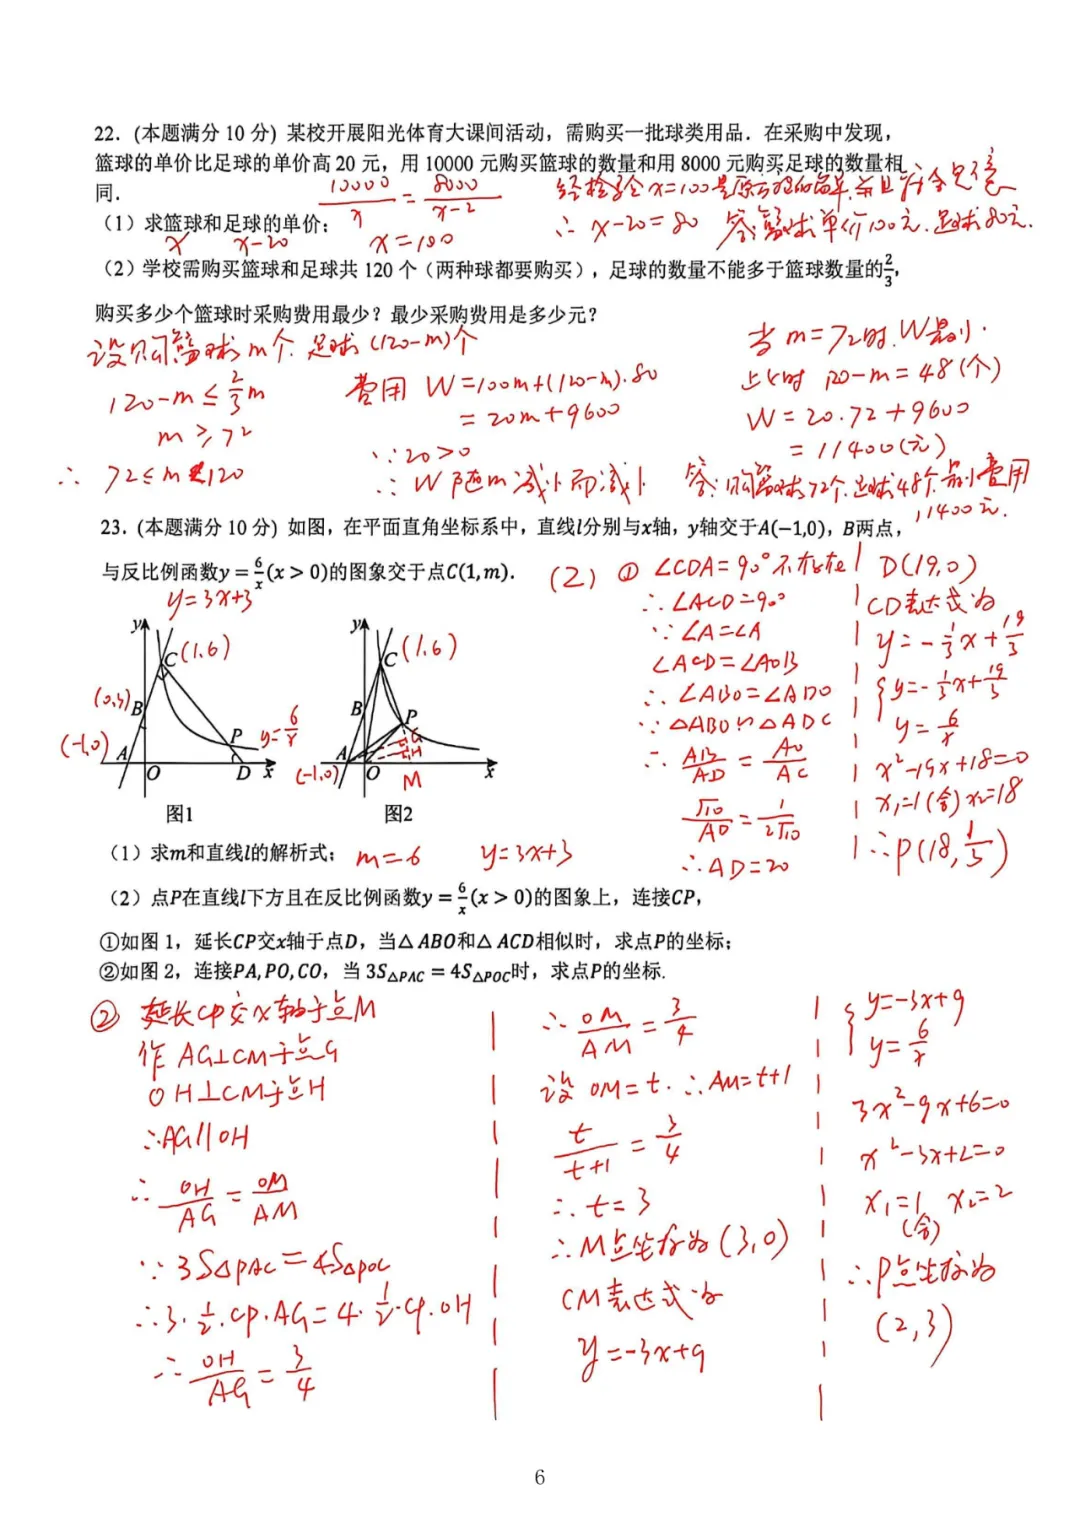 22. (本题满分 10 分) 某校开展阳光体育大课间活动，需购买一批球类用品．在采购中发现，
篮球的单价比足球的单价高 20 元，用 10000 元购买篮球的数量和用 8000 元购买足球的数量相
同．
10000/x = 8000/x-2
经检验 x=100是原方程的简单,并且符合题意
(1) 求篮球和足球的单价；
x x-20 x=100
∴ x-20=80 答:篮球单价100元.足球80元.
(2) 学校需购买篮球和足球共 120 个（两种球都要购买），足球的数量不能多于篮球数量的2/3，
购买多少个篮球时采购费用最少？最少采购费用是多少元？
设购篮球m个.足球(120-m)个
120-m≤2/3m
m≥72
∴ 72≤m<120
费用 W=100m+(120-m).80
=20m+9600
∵20>0
∴ W随m减小而减小
当m=72时.W最小.
此时 120-m=48(个)
W=20.72+9600
=11400(元)
答:购篮球72个.足球48个.最小费用
11400元.
23. (本题满分 10 分) 如图，在平面直角坐标系中，直线l分别与x轴，y轴交于A(−1,0)，B两点，
与反比例函数y = 6/x (x > 0)的图象交于点C(1, m)．
y=3x+3
y C(1.6) (0,3) B P y=6/x (-1,0) A O D x
图1
y C(1.6) B P G H A (-1,0) O M x
图2
(2) ① ∠CDA=90°不存在
∴∠ACD=90°
∵∠A=∠A
∠ACD=∠AOB
∴∠ABO=∠ADO
∵△ABO∽△ADC
∴AB/AD=AO/AC
√10/AD=1/2√10
∴AD=20
D(19,0)
CD表达式为
y=-1/3x+19/3
{y=-1/3x+19/3
y=6/x
x²-19x+18=0
x₁=1(舍)x₂=18
∴P(18,1/3)
(1) 求m和直线l的解析式； m=6 y=3x+3
(2) 点P在直线l下方且在反比例函数y = 6/x (x > 0)的图象上，连接CP，
①如图 1，延长CP交x轴于点D，当△ ABO和△ ACD相似时，求点P的坐标；
②如图 2，连接PA, PO, CO，当 3S△PAC = 4S△POC时，求点P的坐标.
② 延长CP交x轴于点M
作 AG⊥CM于点G
OH⊥CM于点H
∴AG∥OH
∴ OH/AG=OM/AM
∵3S△PAC=4S△POC
∴3·1/2·CP·AG=4·1/2·CP·OH
∴ OH/AG=3/4
∴ OM/AM=3/4
设 OM=t.∴AM=t+1
t/t+1=3/4
∴t=3
∴M点坐标为(3,0)
CM表达式为
y=-3x+9
{y=-3x+9
y=6/x
3x²-9x+6=0
x²-3x+2=0
x₁=1 x₂=2
(舍)
∴P点坐标为
(2,3)
6